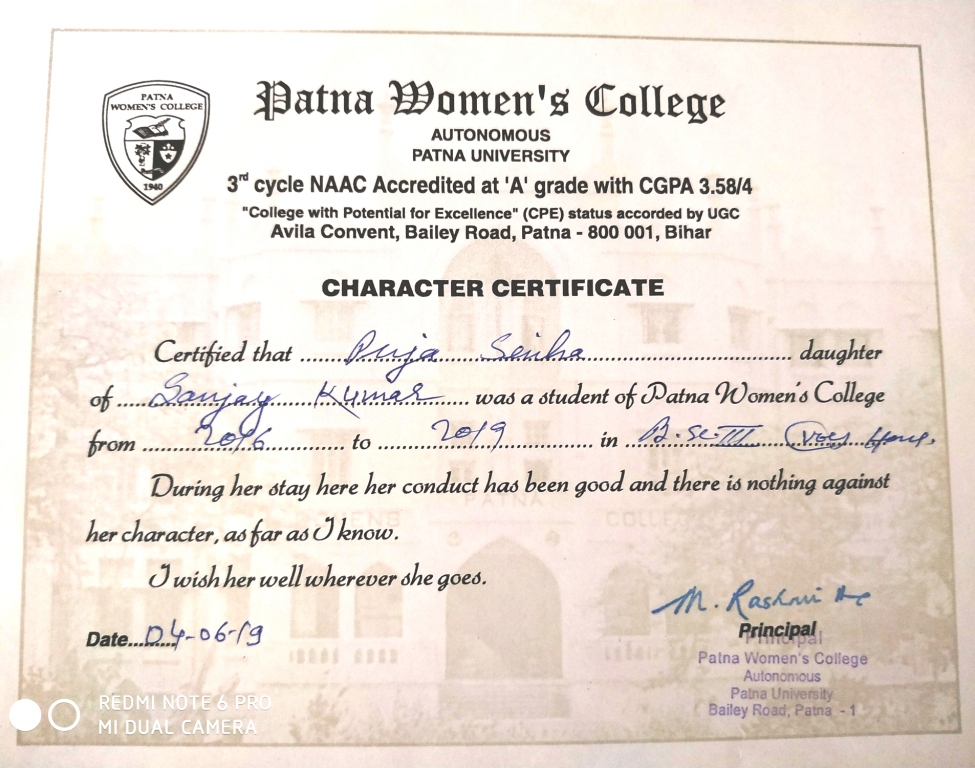 PATNA
WOMEN'S COLLEGE
1940
Patna Women's College
AUTONOMOUS
PATNA UNIVERSITY
3rd cycle NAAC Accredited at 'A' grade with CGPA 3.58/4
"College with Potential for Excellence" (CPE) status accorded by UGC
Avila Convent, Bailey Road, Patna - 800 001, Bihar
CHARACTER CERTIFICATE
Certified that Puja Sinha daughter
of Sanjay Kumar was a student of Patna Women's College
from 2016 to 2019 in B.Sc III
During her stay here her conduct has been good and there is nothing against
her character, as far as I know.
I wish her well wherever she goes.
M. Rashmi
Date...04-06-19
Principal
Principal
Patna Women's College
Autonomous
Patna University
Bailey Road, Patna - 1
REDMI NOTE 6 PRO
MI DUAL CAMERA